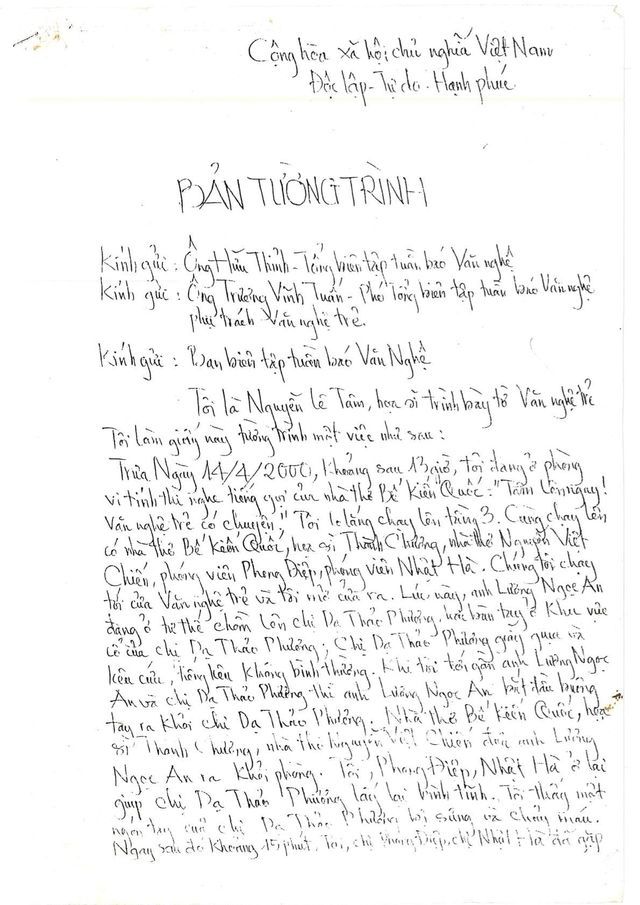 Cộng hòa xã hội chủ nghĩa Việt Nam
Độc lập - Tự do - Hạnh phúc
BẢN TƯỜNG TRÌNH
Kính gửi : Ông Hữu Thỉnh - Tổng biên tập tuần báo Văn nghệ
Kính gửi : Ông Trương Vĩnh Tuấn - Phó Tổng biên tập tuần báo Văn nghệ
phụ trách Văn nghệ trẻ.
Kính gửi : Ban biên tập tuần báo Văn Nghệ
Tôi là Nguyễn Lê Tâm, họa sĩ trình bày tờ Văn nghệ trẻ
Tôi làm giấy này tường trình một việc như sau :
Trưa Ngày 14/4/2000, khoảng sau 13 giờ, tôi đang ở phòng
vi tính thì nghe tiếng gọi của nhà thơ Bế Kiến Quốc : "Tâm lên ngay!
Văn nghệ trẻ có chuyện," Tôi lo lắng chạy lên tầng 3. Cùng chạy lên
có nhà thơ Bế Kiến Quốc, họa sĩ Thành Chương, nhà thơ Nguyễn Việt
Chiến, phóng viên Phong Điệp, phóng viên Nhật Hà. Chúng tôi chạy
tới cửa Văn nghệ trẻ và tôi mở cửa ra. Lúc này, anh Lương Ngọc An
đang ở tư thế chồm lên chị Dạ Thảo Phương, hai bàn tay ở khu vực
cổ của chị Dạ Thảo Phương; Chị Dạ Thảo Phương giãy giụa và
kêu cứu, tiếng kêu không bình thường. Khi tôi tới gần anh Lương Ngọc
An và chị Dạ Thảo Phương thì anh Lương Ngọc An bắt đầu buông
tay ra khỏi chị Dạ Thảo Phương. Nhà thơ Bế Kiến Quốc, họa
sĩ Thành Chương, nhà thơ Nguyễn Việt Chiến đưa anh Lương
Ngọc An ra khỏi phòng. Tôi, Phong Điệp, Nhật Hà ở lại
giúp chị Dạ Thảo Phương lấy lại bình tĩnh. Tôi thấy một
ngón tay của chị Dạ Thảo Phương bị sưng và chảy máu.
Ngay sau đó khoảng 15 phút, Tôi, chị Phong Điệp, chị Nhật Hà đã gặp